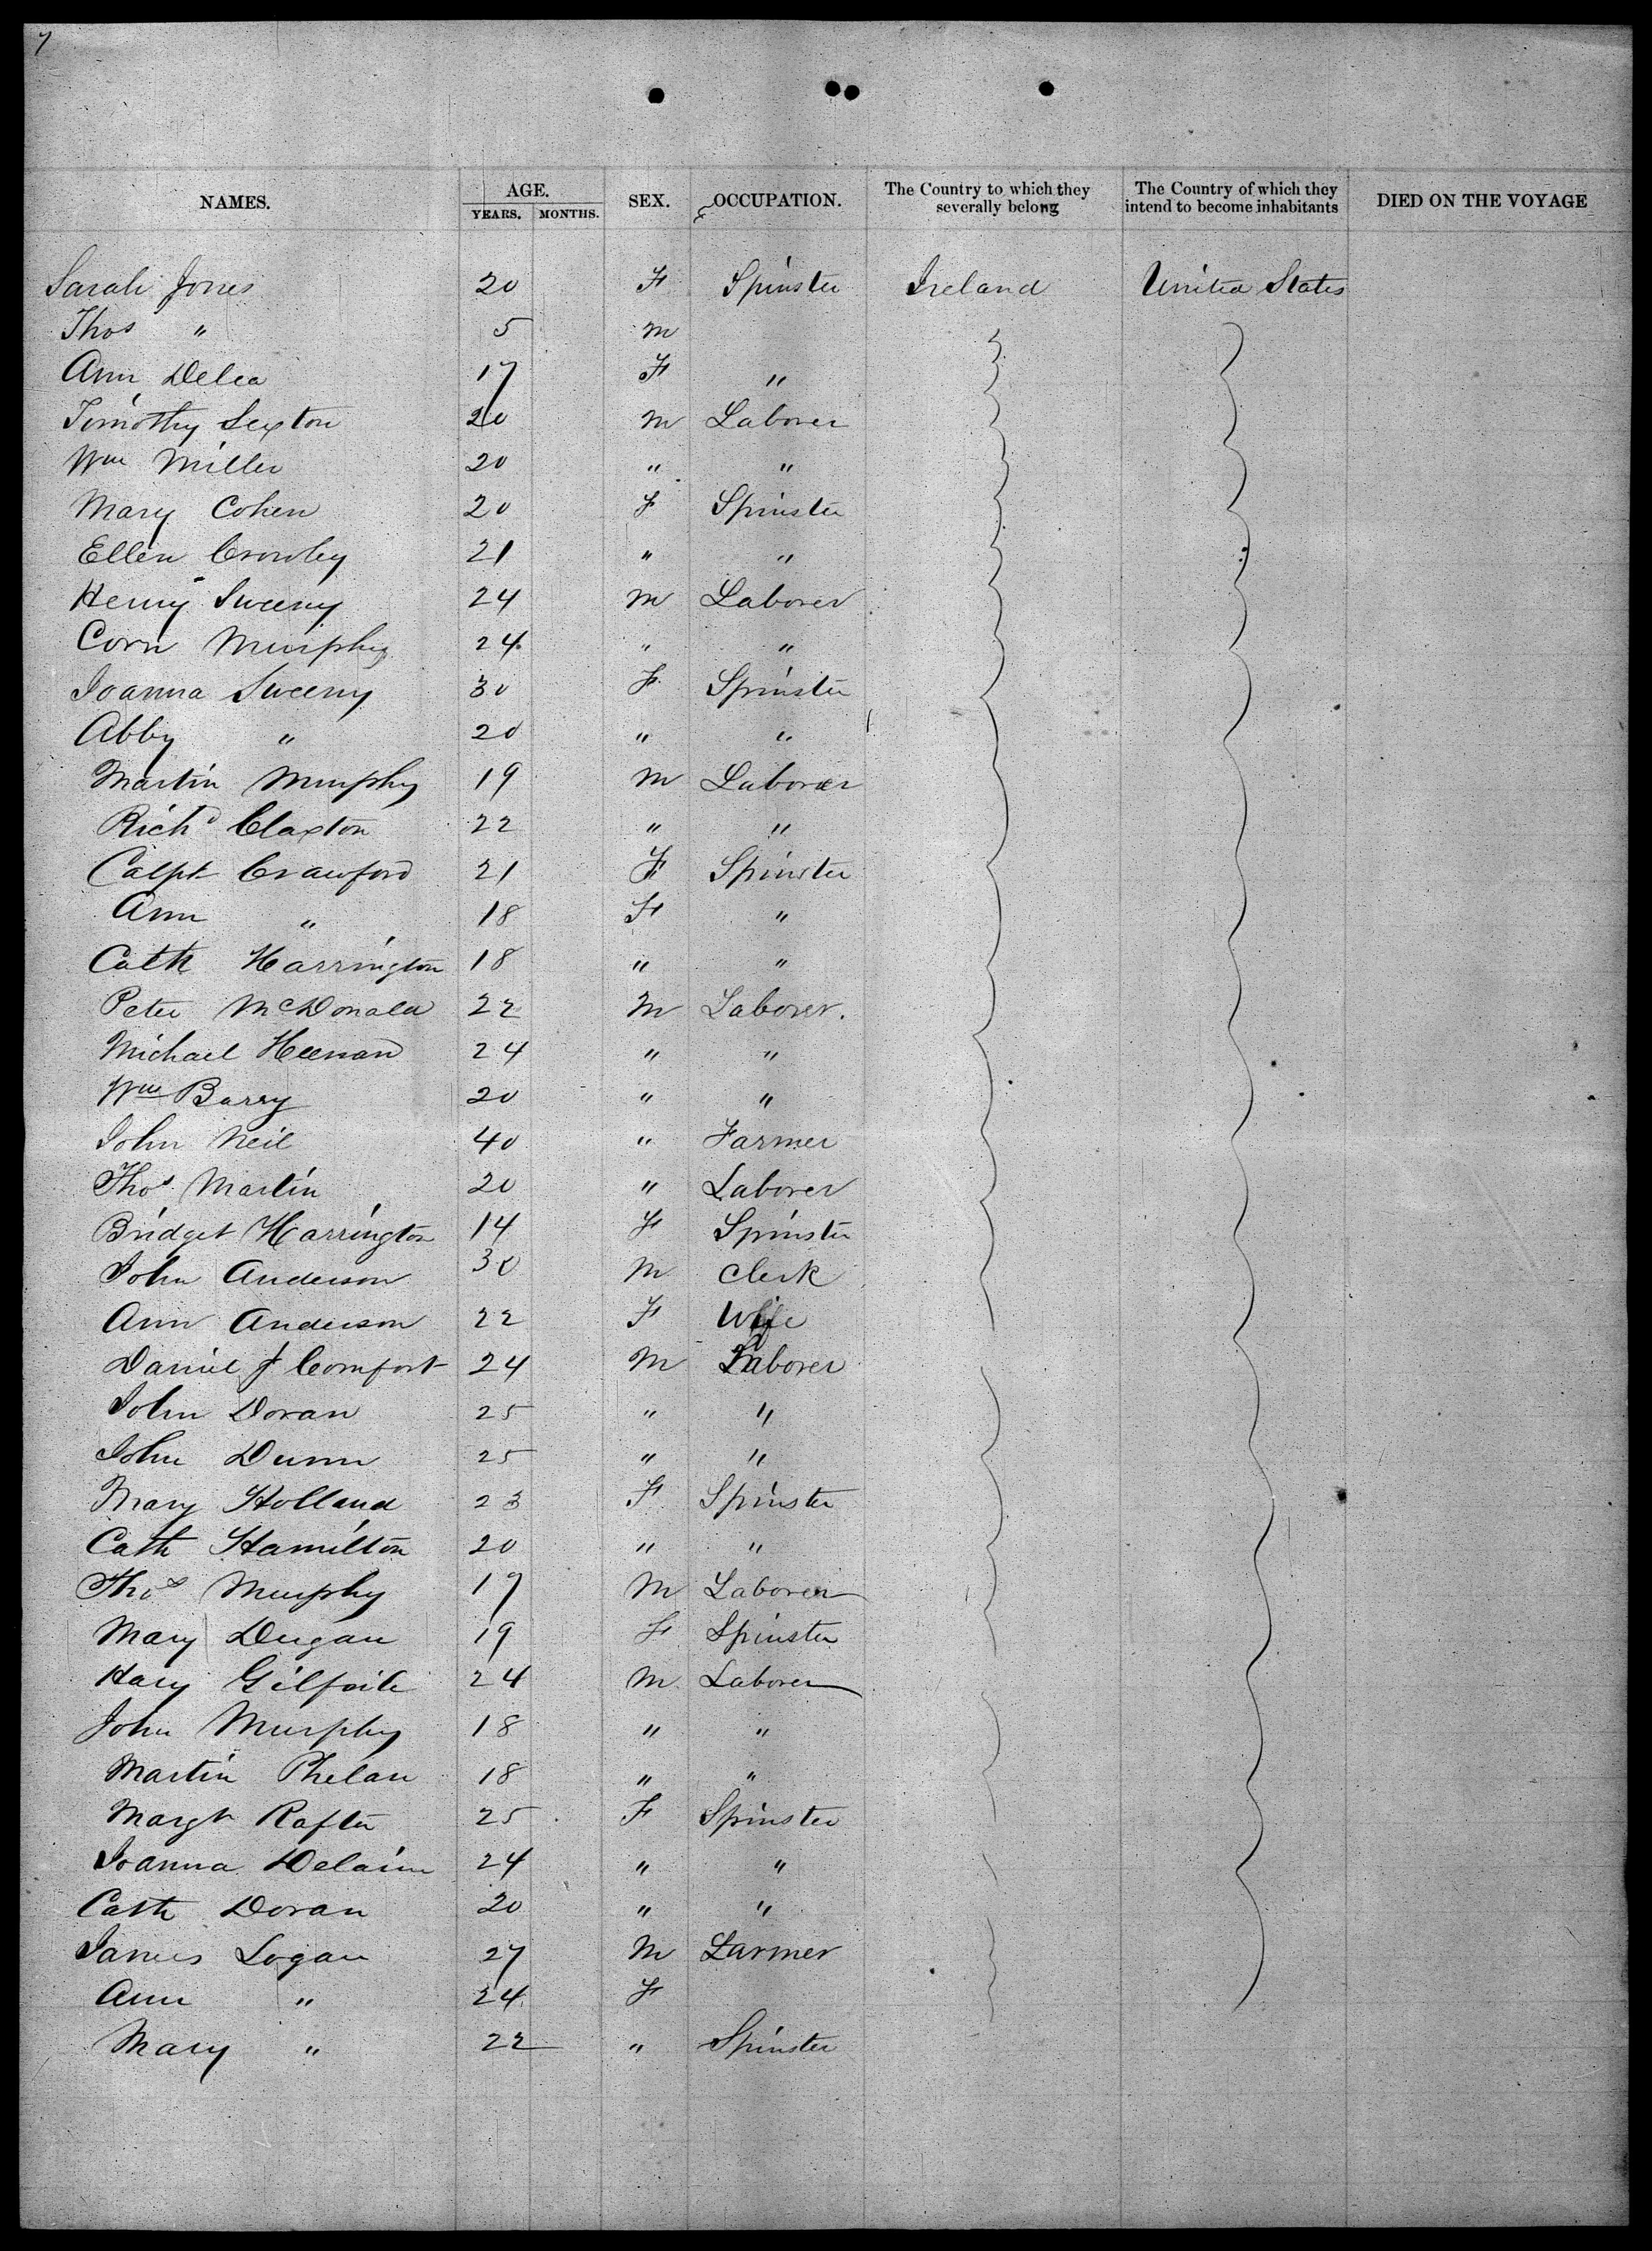 7
NAMES. AGE. YEARS. MONTHS. SEX. OCCUPATION. The Country to which they severally belong The Country of which they intend to become inhabitants DIED ON THE VOYAGE
Sarah Jones 20 F Spinster Ireland United States
Thos " 5 m
Ann Delea 17 F "
Timothy Sexton 20 m Laborer
Wm Miller 20 " "
Mary Cohen 20 F Spinster
Ellen Crowley 21 " "
Henry Sweeny 24 m Laborer
Corn Murphy 24 " "
Joanna Sweeny 30 F Spinster
Abby " 20 " "
Martin Murphy 19 m Laborer
Richd Claxton 22 " "
Crawford 21 F Spinster
Ann " 18 F "
Cath Harrington 18 " "
Peter McDonald 22 m Laborer.
Michael Heenan 24 " "
Wm Barry 20 " "
John Neil 40 " Farmer
Thos Martin 20 " Laborer
Bridget Harrington 14 F Spinster
John Anderson 30 m Clerk
Ann Anderson 22 F Wife
Daniel J Comfort 24 m Laborer
John Doran 25 " "
John Dunn 25 " "
Mary Holland 23 F Spinster
Cath Hamilton 20 " "
Thos Murphy 19 m Laborer
Mary Dugan 19 F Spinster
Hary Gilfoile 24 m Laborer
John Murphy 18 " "
Martin Phelan 18 " "
Margt Rafter 25 F Spinster
Joanna 24 " "
Cath Doran 20 " "
James Logan 27 m Farmer
Ann " 24 F
Mary " 22 " Spinster